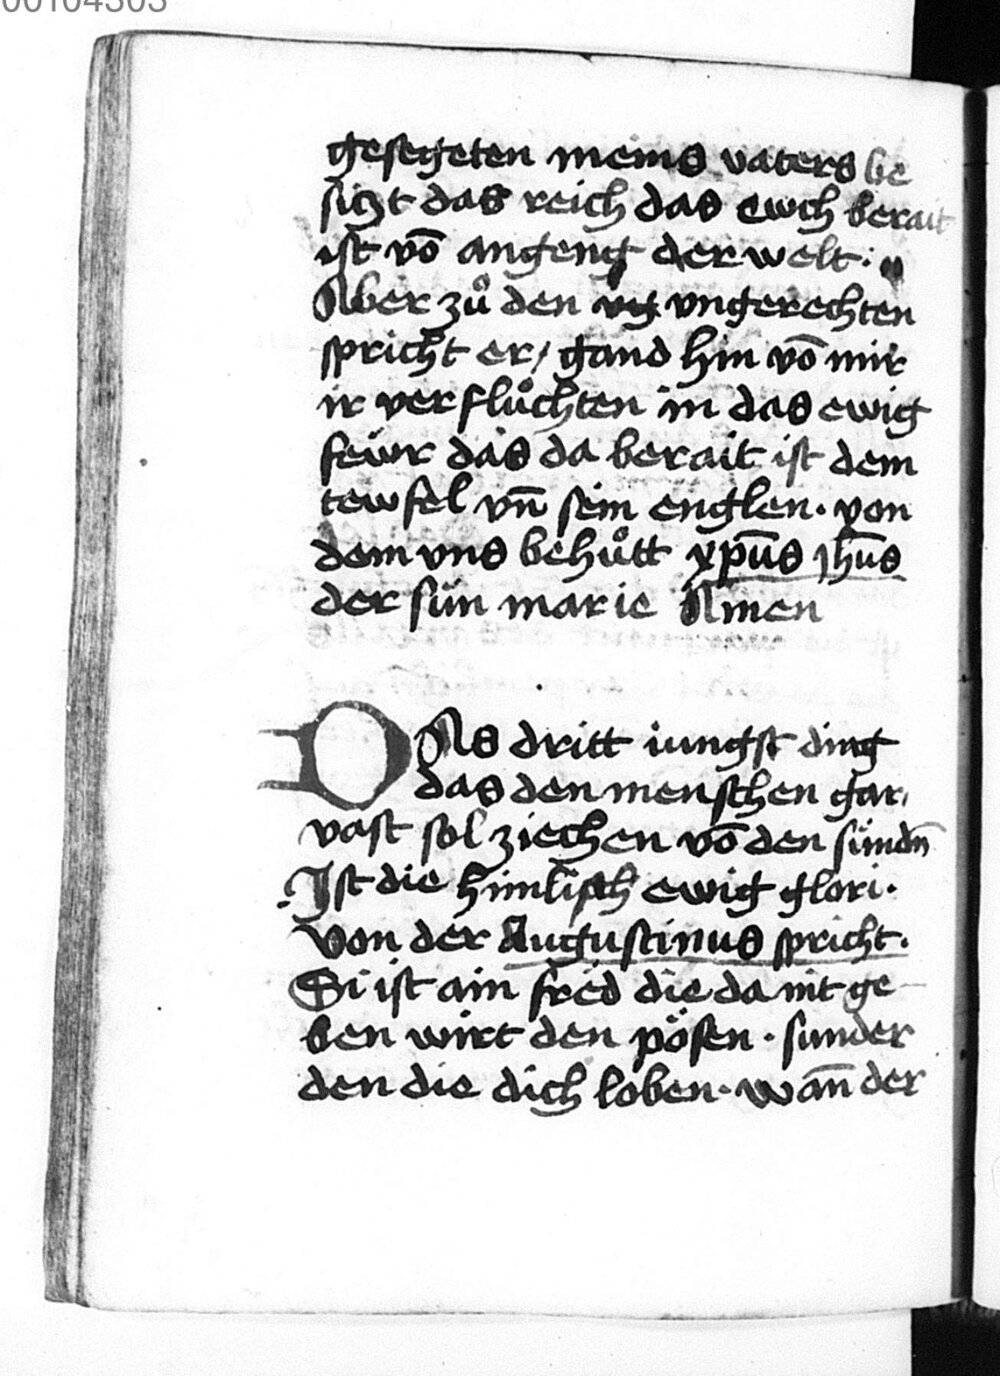 00104303
gesegeten meins vaters be
siczt das reich das ewch berait
ist vō angeng der welt :
Aber zů den vngerechten
spricht er / gand hin vō mir
ir verflůchten in das ewig
fewr das da berait ist dem
tewfel vn̄ sein englen · von
dem vns behůtt xp̄us Jhū̄s
der sün marie Amen
DAs dritt iungst ding
das den menschen gar
vast sol ziechen vō den sündn̄
Ist die himlisch ewig glori ·
Von der Augustinus spricht ·
Si ist ain frëd die da nit ge
ben wirt den pösen · sunder
den die dich loben · wan̄ der